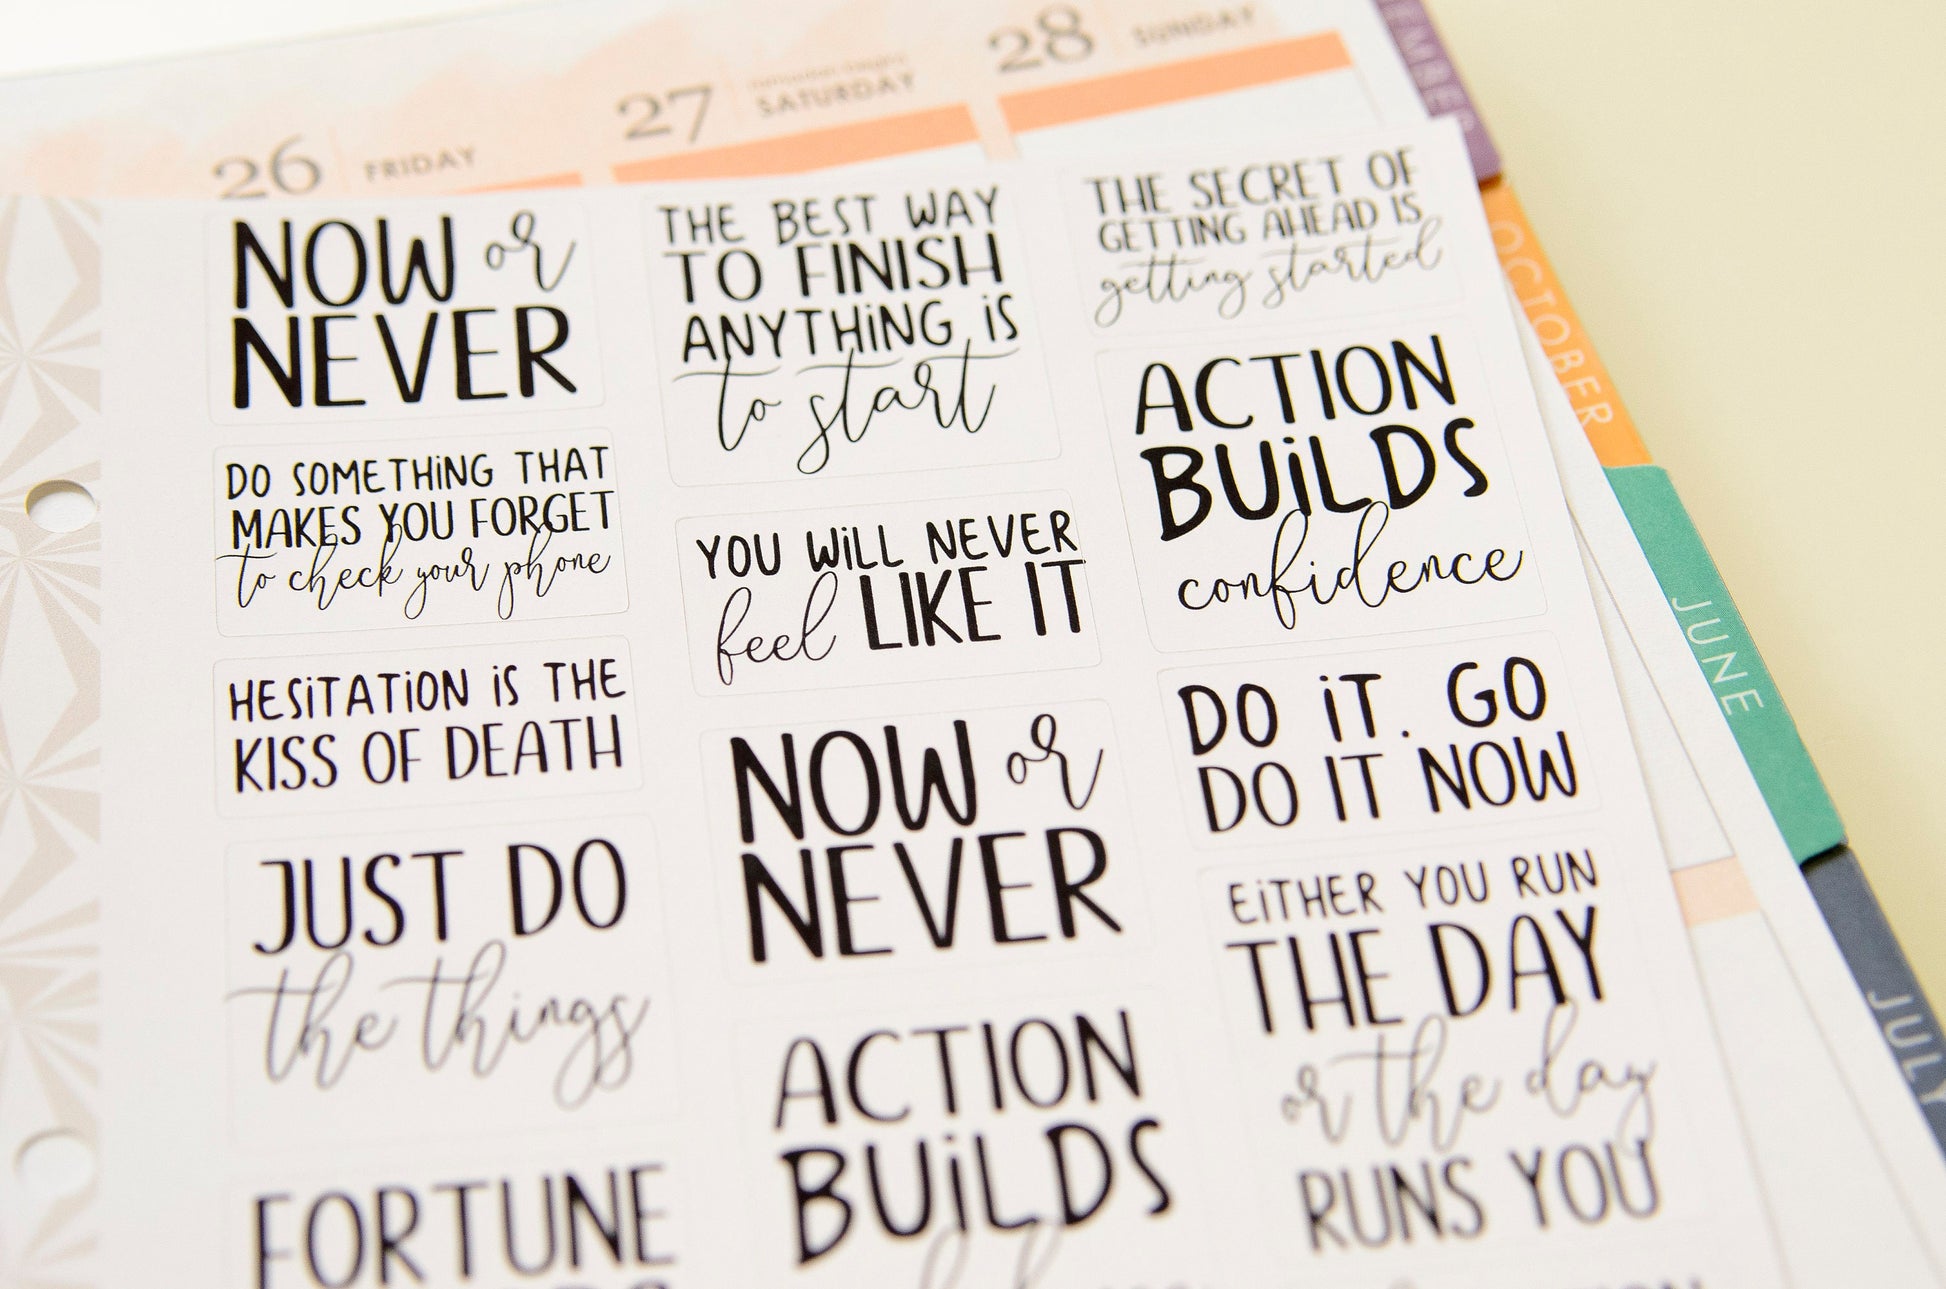 26 FRIDAY
27 SATURDAY
28 SUNDAY
NOW or
NEVER
DO SOMETHING THAT
MAKES YOU FORGET
to check your phone
HESITATION IS THE
KISS OF DEATH
JUST DO
the things
FORTUNE
THE BEST WAY
TO FINISH
ANYTHING IS
to start
YOU WILL NEVER
feel LIKE IT
NOW or
NEVER
ACTION
BUILDS
THE SECRET OF
GETTING AHEAD IS
getting started
ACTION
BUILDS
confidence
DO IT. GO
DO IT NOW
EITHER YOU RUN
THE DAY
or the day
RUNS YOU
EMBER
OCTOBER
JUNE
JULY